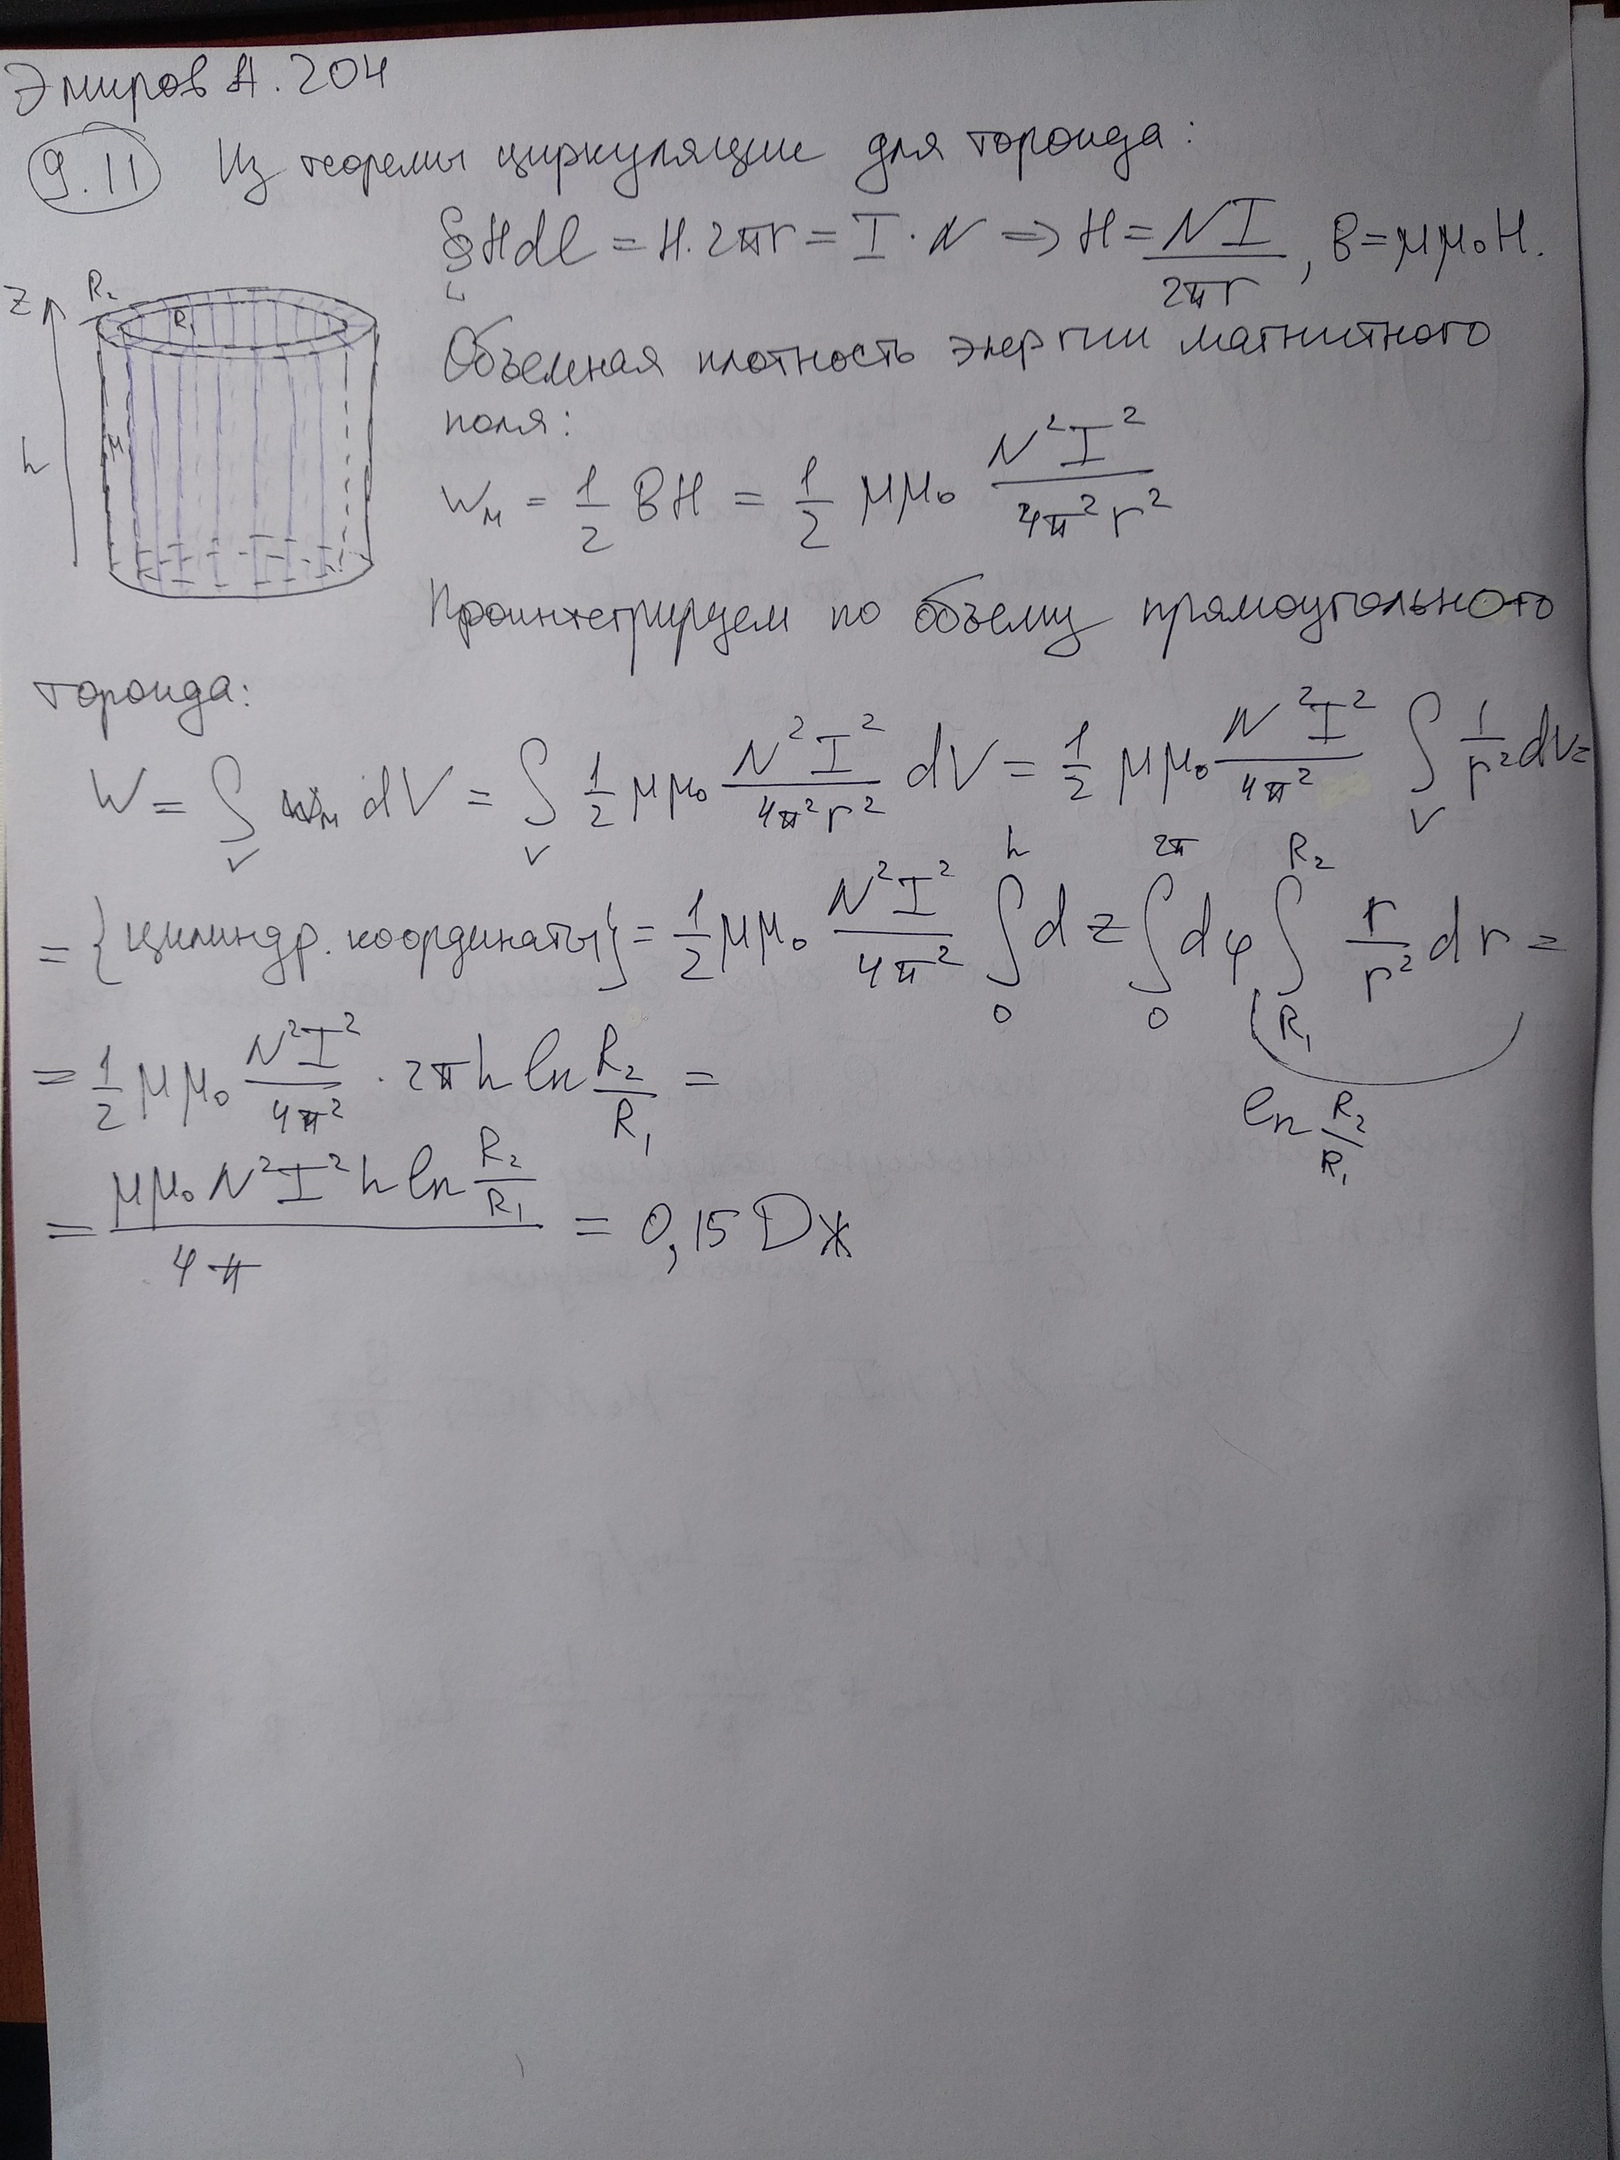 Эмиров А. 204
9.11 Из теоремы циркуляции для тороида:
∮ H dl = H · 2πr = I · N ⇒ H = NI / 2πr , B = μμ₀H.
L
z R₂ R₁
μ
h
Объемная плотность энергии магнитного
поля:
w_м = 1/2 BH = 1/2 μμ₀ N²I² / 4π²r²
Проинтегрируем по объему прямоугольного
тороида:
W = ∫_V w_м dV = ∫_V 1/2 μμ₀ N²I² / 4π²r² dV = 1/2 μμ₀ N²I² / 4π² ∫_V 1/r² dV =
= {цилиндр. координаты} = 1/2 μμ₀ N²I² / 4π² ∫₀^h dz ∫₀^2π dφ ∫_R₁^R₂ r/r² dr =
ln R₂/R₁
= 1/2 μμ₀ N²I² / 4π² · 2πh ln R₂/R₁ =
= μμ₀ N²I² h ln R₂/R₁ / 4π = 0,15 Дж